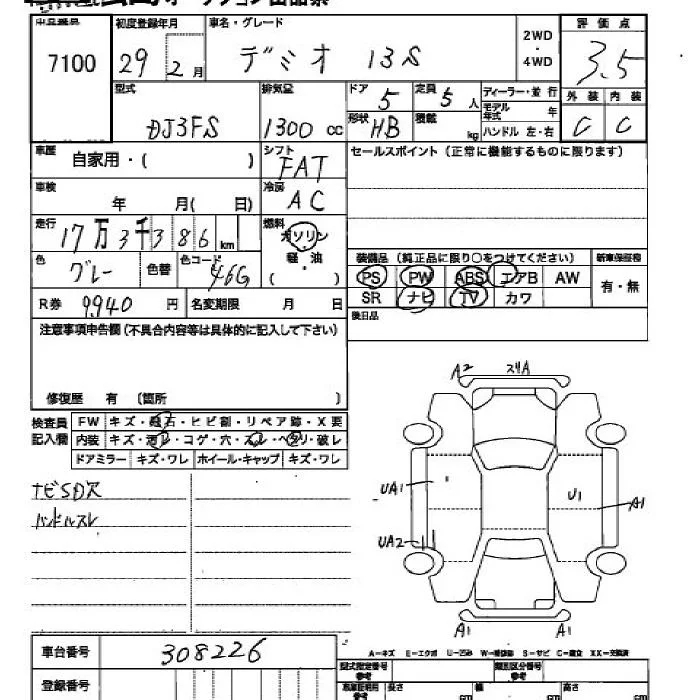 7100
初度登録年月
29 2月
車名・グレード
デミオ 13S
2WD
・
4WD
評価点
3.5
外装 内装
C C
型式
DJ3FS
排気量
1300 cc
ドア 5
定員 5人
形状 HB
積載 kg
ディーラー・並行
モデル年式 年
ハンドル 左・右
車歴 自家用・( )
シフト
FAT
セールスポイント(正常に機能するものに限ります)
車検 年 月( 日)
冷房
AC
走行
17万3千386km
燃料
ガソリン
軽・油
( )
色 グレー 色替
色コード 46G
装備品(純正品に限り○をつけてください)
新車保証書
PS PW ABS エアB AW
有・無
SR ナビ TV カワ
R券 9940 円
名変期限 月 日
後日品
注意事項申告欄(不具合内容等は具体的に記入して下さい)
修復歴 有 〔箇所 〕
検査員記入欄
FW キズ・飛石・ヒビ割・リペア跡・X要
内装 キズ・汚レ・コゲ・穴・スレ・ヘタリ・破レ
ドアミラー キズ・ワレ ホイール・キャップ キズ・ワレ
ナビSD欠
ハンドルスレ
A2 スリA
UA1
U1
A1
UA2
A1 A1
A-キズ E-エクボ U-凹み W-補修跡 S-サビ C-腐食 XX-交換済
車台番号 308226
登録番号
型式指定番号
参考
類別区分番号
参考
長さ cm
幅 cm
高さ cm